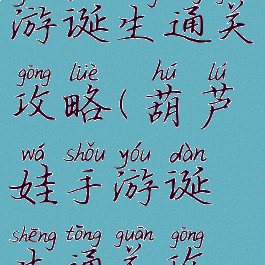 游诞生通关
gōng lüè hú lú
攻略(葫芦
wá shǒu yóu dàn
娃手游诞
shēng tōng guān gōng
生通关攻